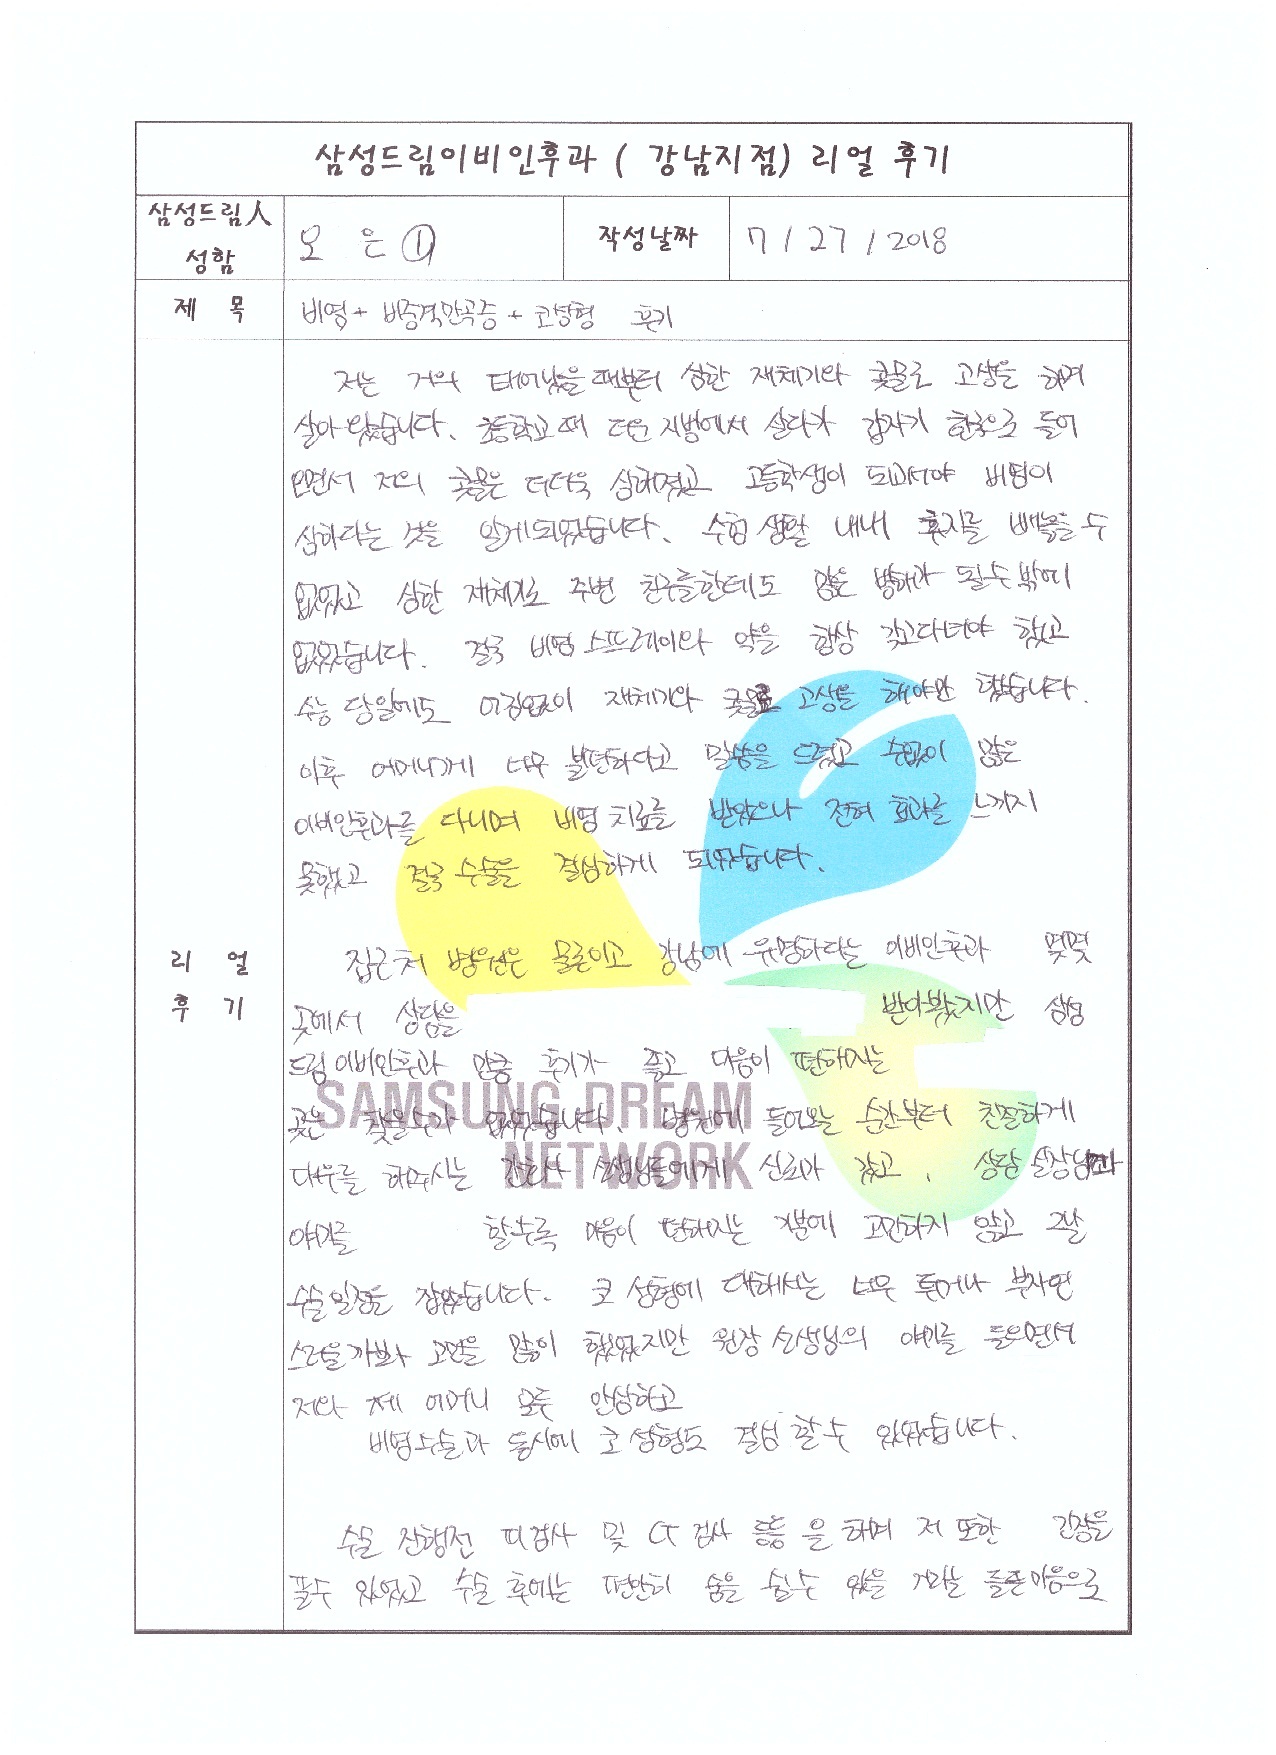 삼성드림이비인후과 ( 강남지점) 리얼 후기
삼성드림人 성함
오 은 ①
작성날짜
7 / 27 / 2018
제 목
비염 + 비중격만곡증 + 코성형 후기
리 얼 후 기
저는 거의 태어났을때부터 심한 재체기와 콧물로 고생을 하며
살아 왔습니다. 초등학교때 더운 지방에서 살다가 갑자기 한국으로 들어
오면서 저의 콧물은 더더욱 심해졌고 고등학생이 되고서야 비염이
심하다는 것을 알게되었습니다. 수험 생활 내내 휴지를 빼놓을 수
없었고 심한 재체기로 주변 친구들한테도 많은 방해가 될수 밖에
없었습니다. 결국 비염 스프레이와 약을 항상 갖고다녀야 했고
수능 당일에도 어김없이 재체기와 콧물로 고생을 해야만 했습니다.
이후 어머니께 너무 불편하다고 말씀을 드렸고 수없이 많은
이비인후과를 다니며 비염 치료를 받았으나 전혀 효과를 느끼지
못했고 결국 수술을 결심하게 되었습니다.
집근처 병원은 물론이고 강남에 유명하다는 이비인후과 몇몇
곳에서 상담을 받아봤지만 삼성
드림이비인후과 만큼 후기가 좋고 마음이 편해지는
곳은 찾을수가 없었습니다. 병원에 들어오는 순간부터 친절하게
대우를 해주시는 간호사 선생님들에게 신뢰가 갔고, 상담 실장님과
얘기를 할수록 마음이 편해지는 기분에 고민하지 않고 그날
수술일정을 잡았습니다. 코 성형에 대해서는 너무 튀거나 부자연
스러울까봐 고민을 많이 했었지만 원장 선생님의 얘기를 들으면서
저와 제 어머니 모두 안심하고
비염수술과 동시에 코 성형도 결심 할 수 있었습니다.
수술 진행전 피검사 및 CT 검사 등등 을 하며 저 또한 긴장을
풀수 있었고 수술 후에는 편안히 숨을 쉴수 있을 거라는 들뜬마음으로
SAMSUNG DREAM
NETWORK